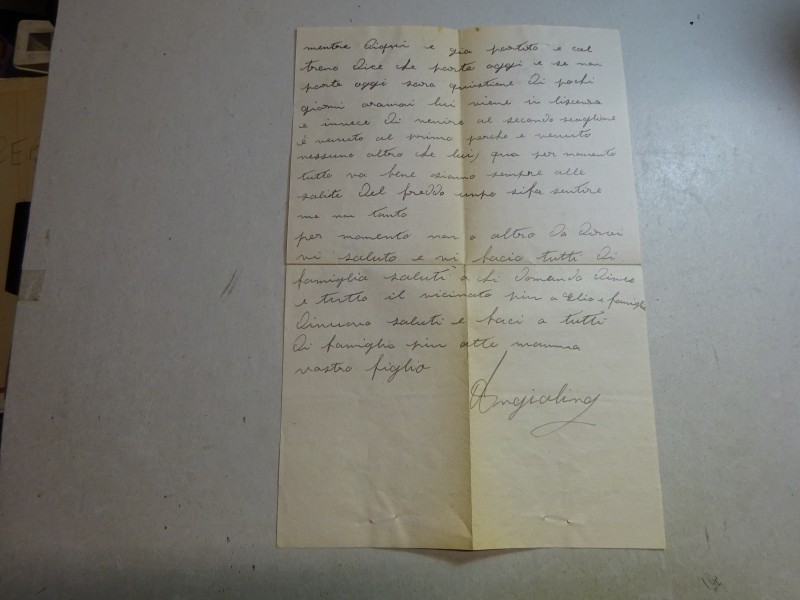 mentre Diqui e gia partito e col
treno Dice che parte oggi e se non
parte oggi sara quistione Di pochi
giorni oramai lui viene in licenza
e invece Di venire al secondo scaglione
è venuto al primo perche e venuto
nessuno altro che lui, qua per momento
tutto va bene siamo sempre alle
solite Del freddo unpo sifa sentire
ma non tanto
per momento non o altro Da Dirvi
vi saluto e vi bacio tutti Di
famiglia saluti a chi Domanda Dime
e tutto il vicinato piu a Elio e famiglia
Dinuovo saluti e baci a tutti
Di famiglia piu atte mamma
vostro figlio
Angiolino